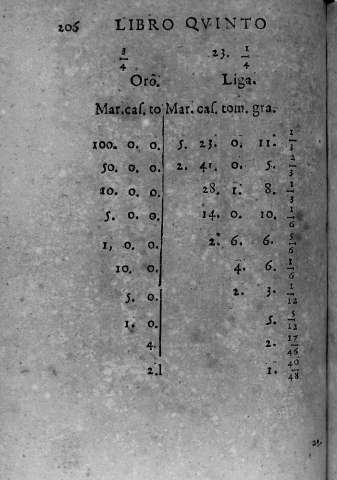 206 LIBRO QVINTO
3/4 23. 1/4
Orō. Liga.
Mar.cas. to Mar. cas. tom. gra.
100. 0. 0. 5. 23. 0. 11. 1/3
50. 0. 0. 2. 41. 0. 5. 2/3
20. 0. 0. 28. 1. 8. 1/3
5. 0. 0. 14. 0. 10. 1/6
1, 0. 0. 2. 6. 6. 5/6
10. 0. 4. 6. 1/6
5. 0. 2. 3. 1/12
1. 0. 5. 5/12
4. 2. 17/46
2. 1. 40/48